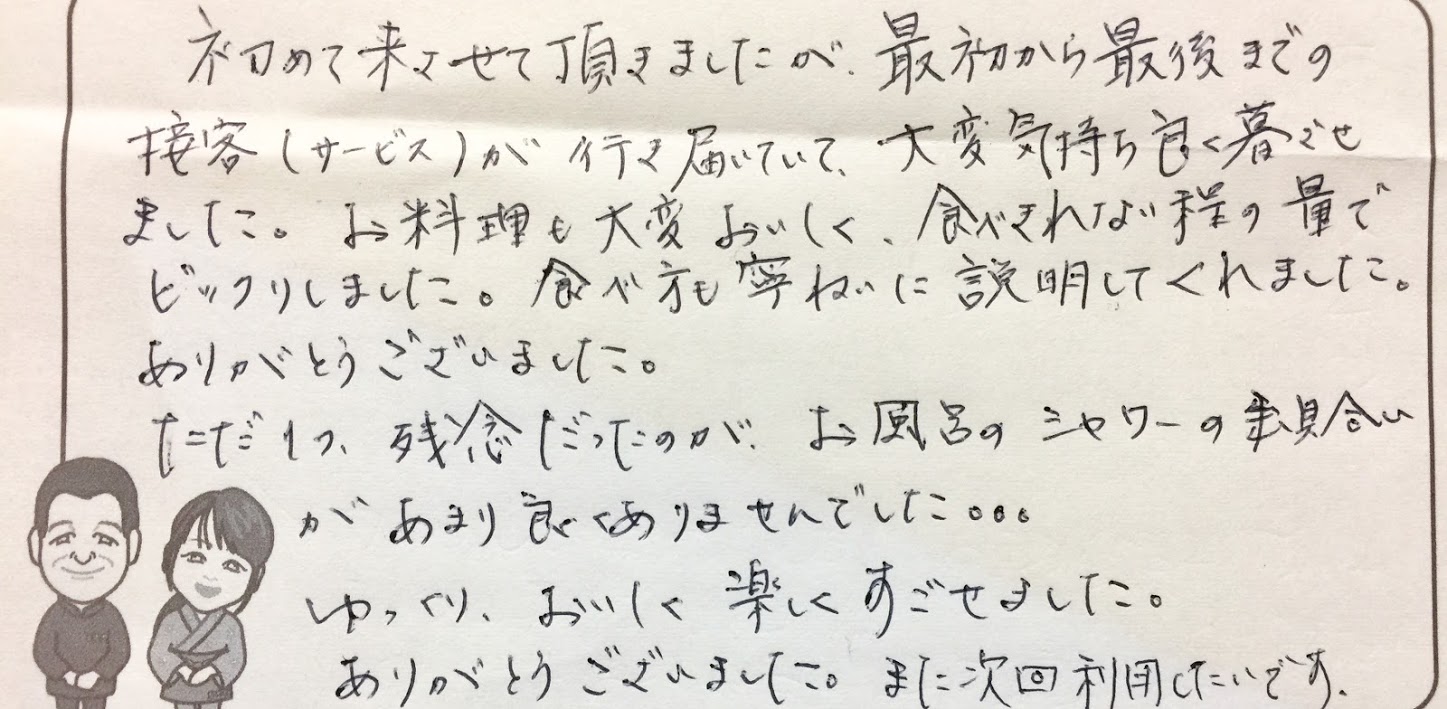 初めて来させて頂きましたが、最初から最後までの
接客(サービス)が行き届いていて、大変気持ち良く暮ごせ
ました。お料理も大変おいしく、食べきれない程の量で
ビックリしました。食べ方も寧ねいに説明してくれました。
ありがとうございました。
ただ1つ、残念だったのが、お風呂のシャワーの具合い
があまり良くありませんでした。。。
ゆっくり、おいしく楽しくすごせました。
ありがとうございました。また次回利用したいです。